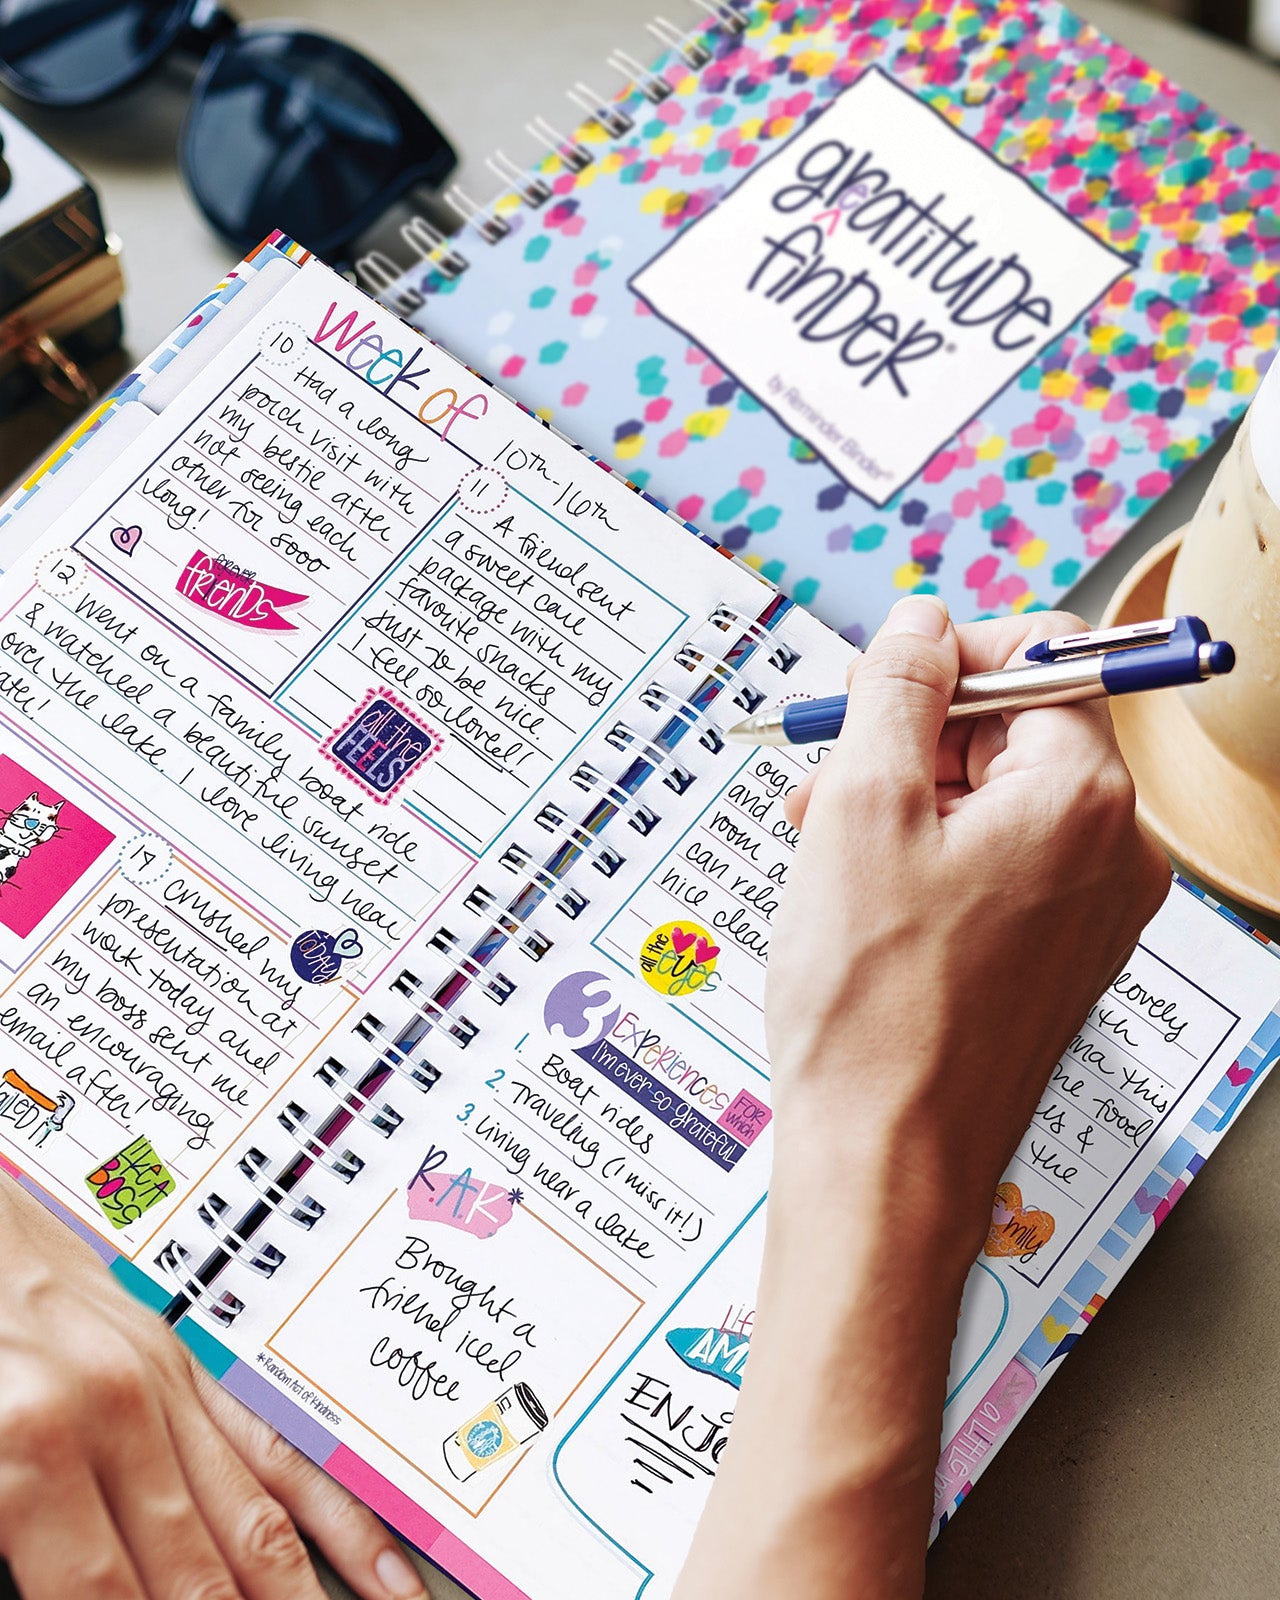 gratitude
e
^
finder®
by Reminder Binder®
Week of
10th-16th
10
Had a long
porch visit with
my bestie after
not seeing each
other for sooo
long!
FOREVER
friends
11
A friend sent
a sweet care
package with my
favorite snacks
just to be nice.
I feel so loved!
all the
FEELS
12
Went on a family boat ride
& watched a beautiful sunset
over the lake. I love living near
TODAY
14
Crushed my
presentation at
work today and
my boss sent me
an encouraging
email after!
LIKE A
BOSS
and
room
can
nice
all the
eyes
3 Experiences
I'm ever-so-grateful
FOR
which
1. Boat rides
2. Traveling (I miss it!)
3. Living near a lake
R.A.K*
Brought a
friend iced
coffee
*Random Act of Kindness
lovely
this
food
&
the
a little